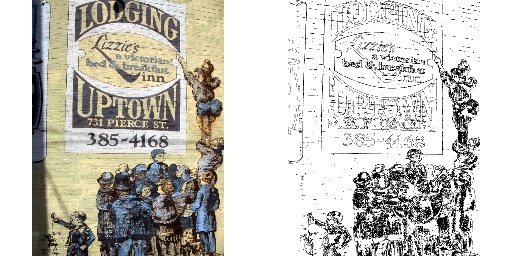 LODGING
Lizzie's
a victorian
bed & breakfast
inn
UPTOWN
731 PIERCE ST.
385-4168
LODGING
Lizzie's
a victorian
bed & breakfast
inn
UPTOWN
385-4168